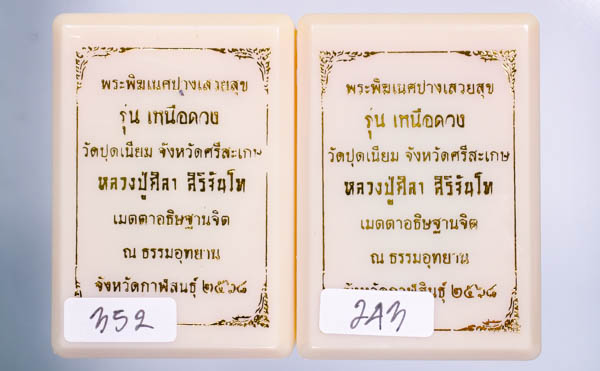 พระพิฆเนศปางเสวยสุข
รุ่น เหนือดวง
วัดปุดเนียม จังหวัดศรีสะเกษ
หลวงปู่ศิลา สิริจันโท
เมตตาอธิษฐานจิต
ณ ธรรมอุทยาน
จังหวัดกาฬสินธุ์ ๒๕๖๘
352
พระพิฆเนศปางเสวยสุข
รุ่น เหนือดวง
วัดปุดเนียม จังหวัดศรีสะเกษ
หลวงปู่ศิลา สิริจันโท
เมตตาอธิษฐานจิต
ณ ธรรมอุทยาน
จังหวัดกาฬสินธุ์ ๒๕๖๘
243